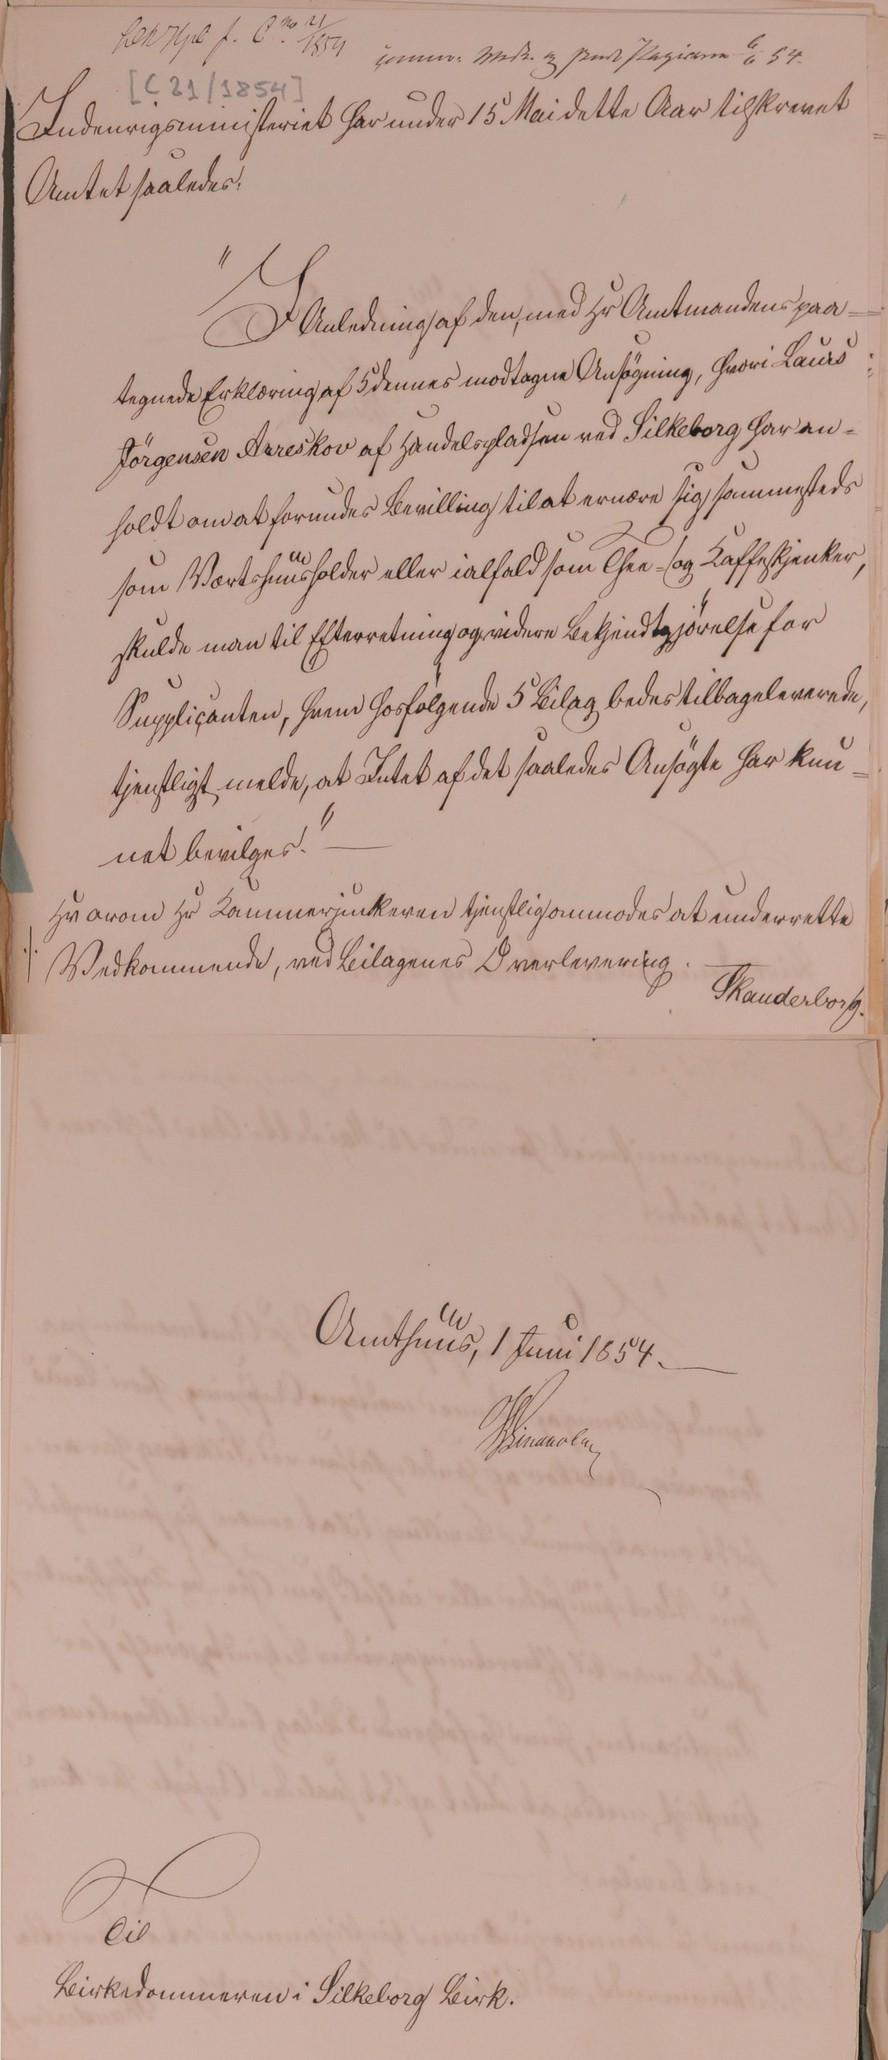 No 21/1854
6/6 54.
[C 21/1854]
Indenrigsministeriet har under 15 Mai dette Aar tilskrevet
Amtet saaledes:
"I Anledning af den, med Hr Amtmandens paa=
tegnede Erklæring af 5 dennes modtagne Ansøgning, hvori Laurs
Jörgensen Arreskov af Handelspladsen ved Silkeborg har an=
holdt om at forundes Bevilling til at ernære sig sammesteds
som Værtshuusholder eller ialfald som Thee= og Kaffeskjenker,
skulde man til Efterretning og videre Bekjendtgjörelse for
Supplicanten, hvem hosfølgende 5 Bilag bedes tilbageleverede,
tjenstligst melde, at Intet af det saaledes Ansøgte har kun=
net bevilges." —
Hvorom Hr Kammerjunkeren tjenstligst anmodes at underrette
Vedkommende, ved Bilagenes Overlevering.
Skanderborg
Amthuus, 1 Juni 1854.
Til
Birkedommeren i Silkeborg Birk.